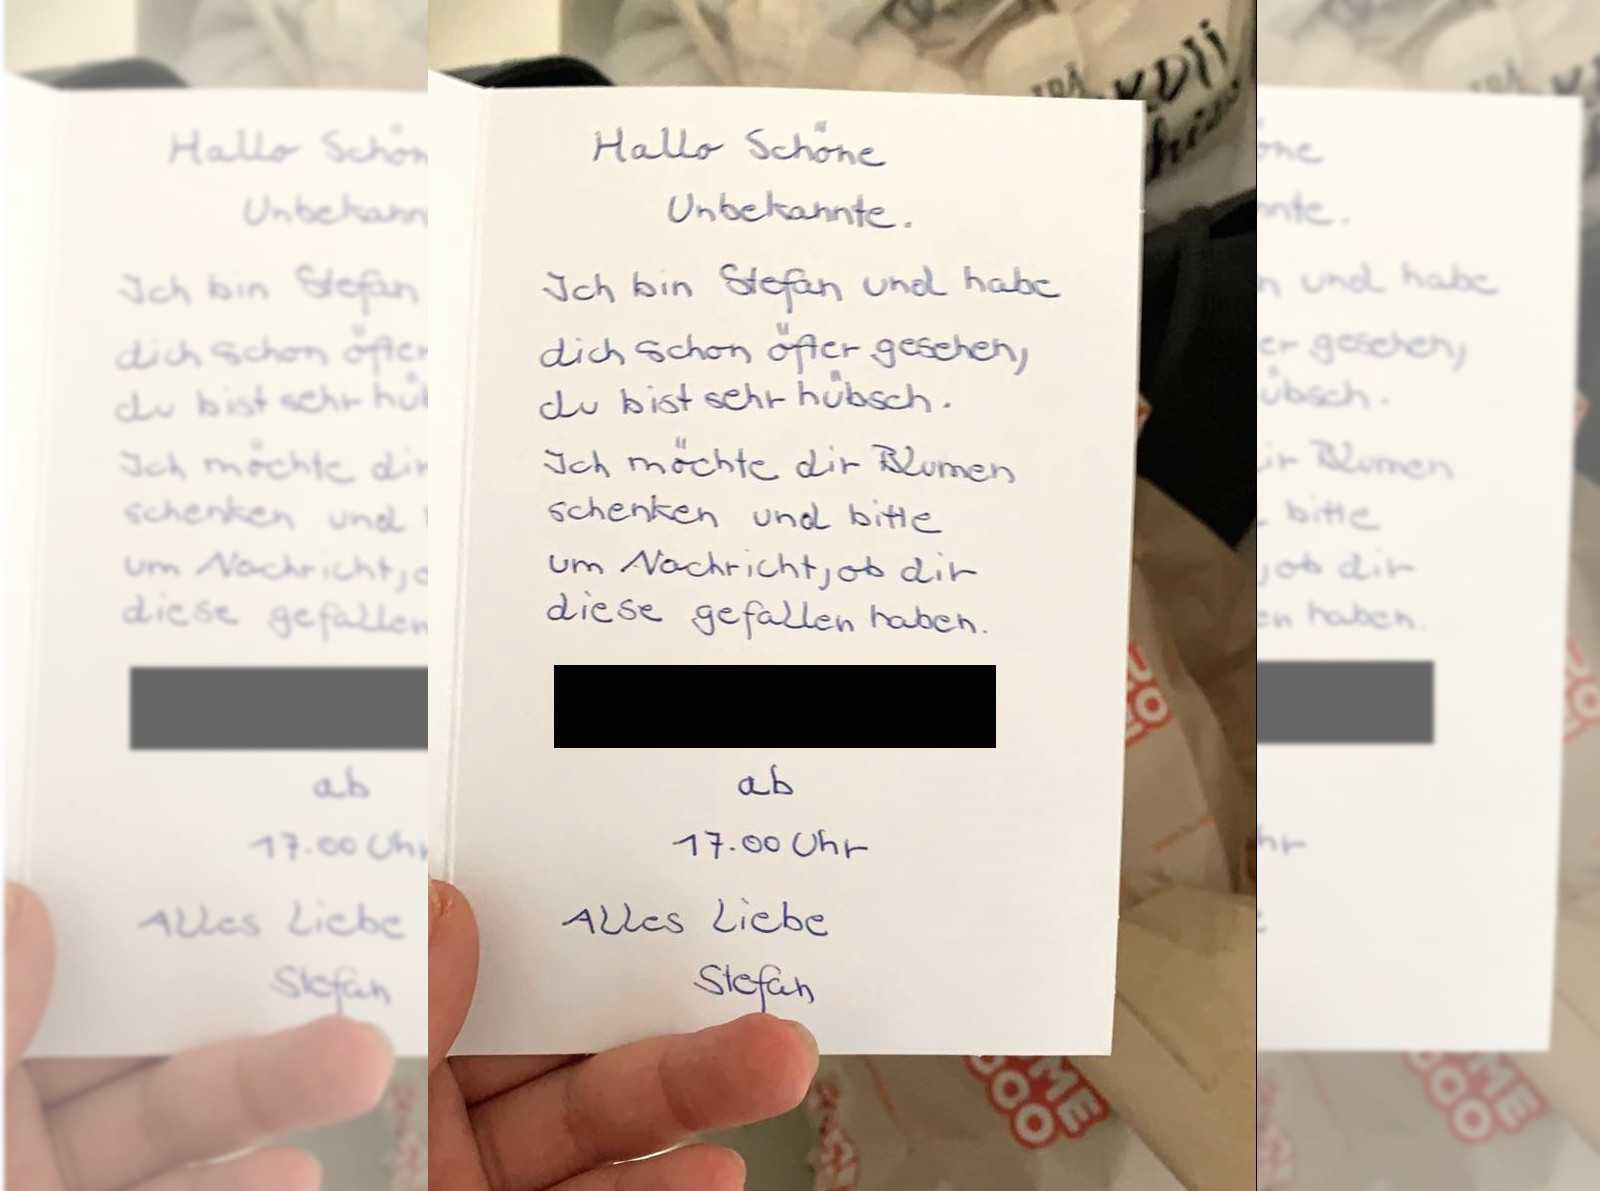 Hallo Schöne
Unbekannte.
Ich bin Stefan und habe
dich schon öfter gesehen,
du bist sehr hübsch.
Ich möchte dir Blumen
schenken und bitte
um Nachricht, ob dir
diese gefallen haben.
ab
17.00 Uhr
Alles Liebe
Stefan